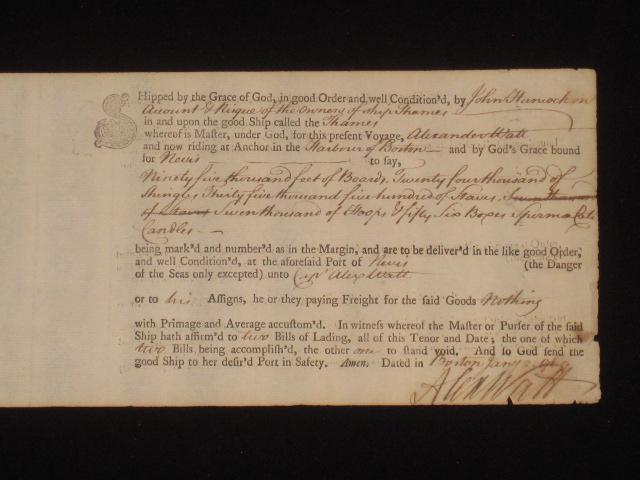 SHipped by the Grace of God, in good Order and well Condition'd, by John Hancock on
Account & Risque of the Owners of ship Thames
in and upon the good Ship called the Thames
whereof is Master, under God, for this present Voyage, Alexander Watt
and now riding at Anchor in the Harbour of Boston and by God's Grace bound
for Nevis to say,
Ninety five thousand feet of Boards, Twenty four thousand of
Shingles, Thirty five thousand five hundred of Staves, Seven thousand
of Staves Seven thousand of Hoops & fifty Six Boxes Sperma Ceti
Candles
being mark'd and number'd as in the Margin, and are to be deliver'd in the like good Order,
and well Condition'd, at the aforesaid Port of Nevis (the Danger
of the Seas only excepted) unto Cap Alex Watt
or to his Assigns, he or they paying Freight for the said Goods Nothing
with Primage and Average accustom'd. In witness whereof the Master or Purser of the said
Ship hath affirm'd to two Bills of Lading, all of this Tenor and Date; the one of which
two Bills being accomplish'd, the other one to stand void. And so God send the
good Ship to her desir'd Port in Safety. Amen. Dated in Boston Jany
Alex Watt